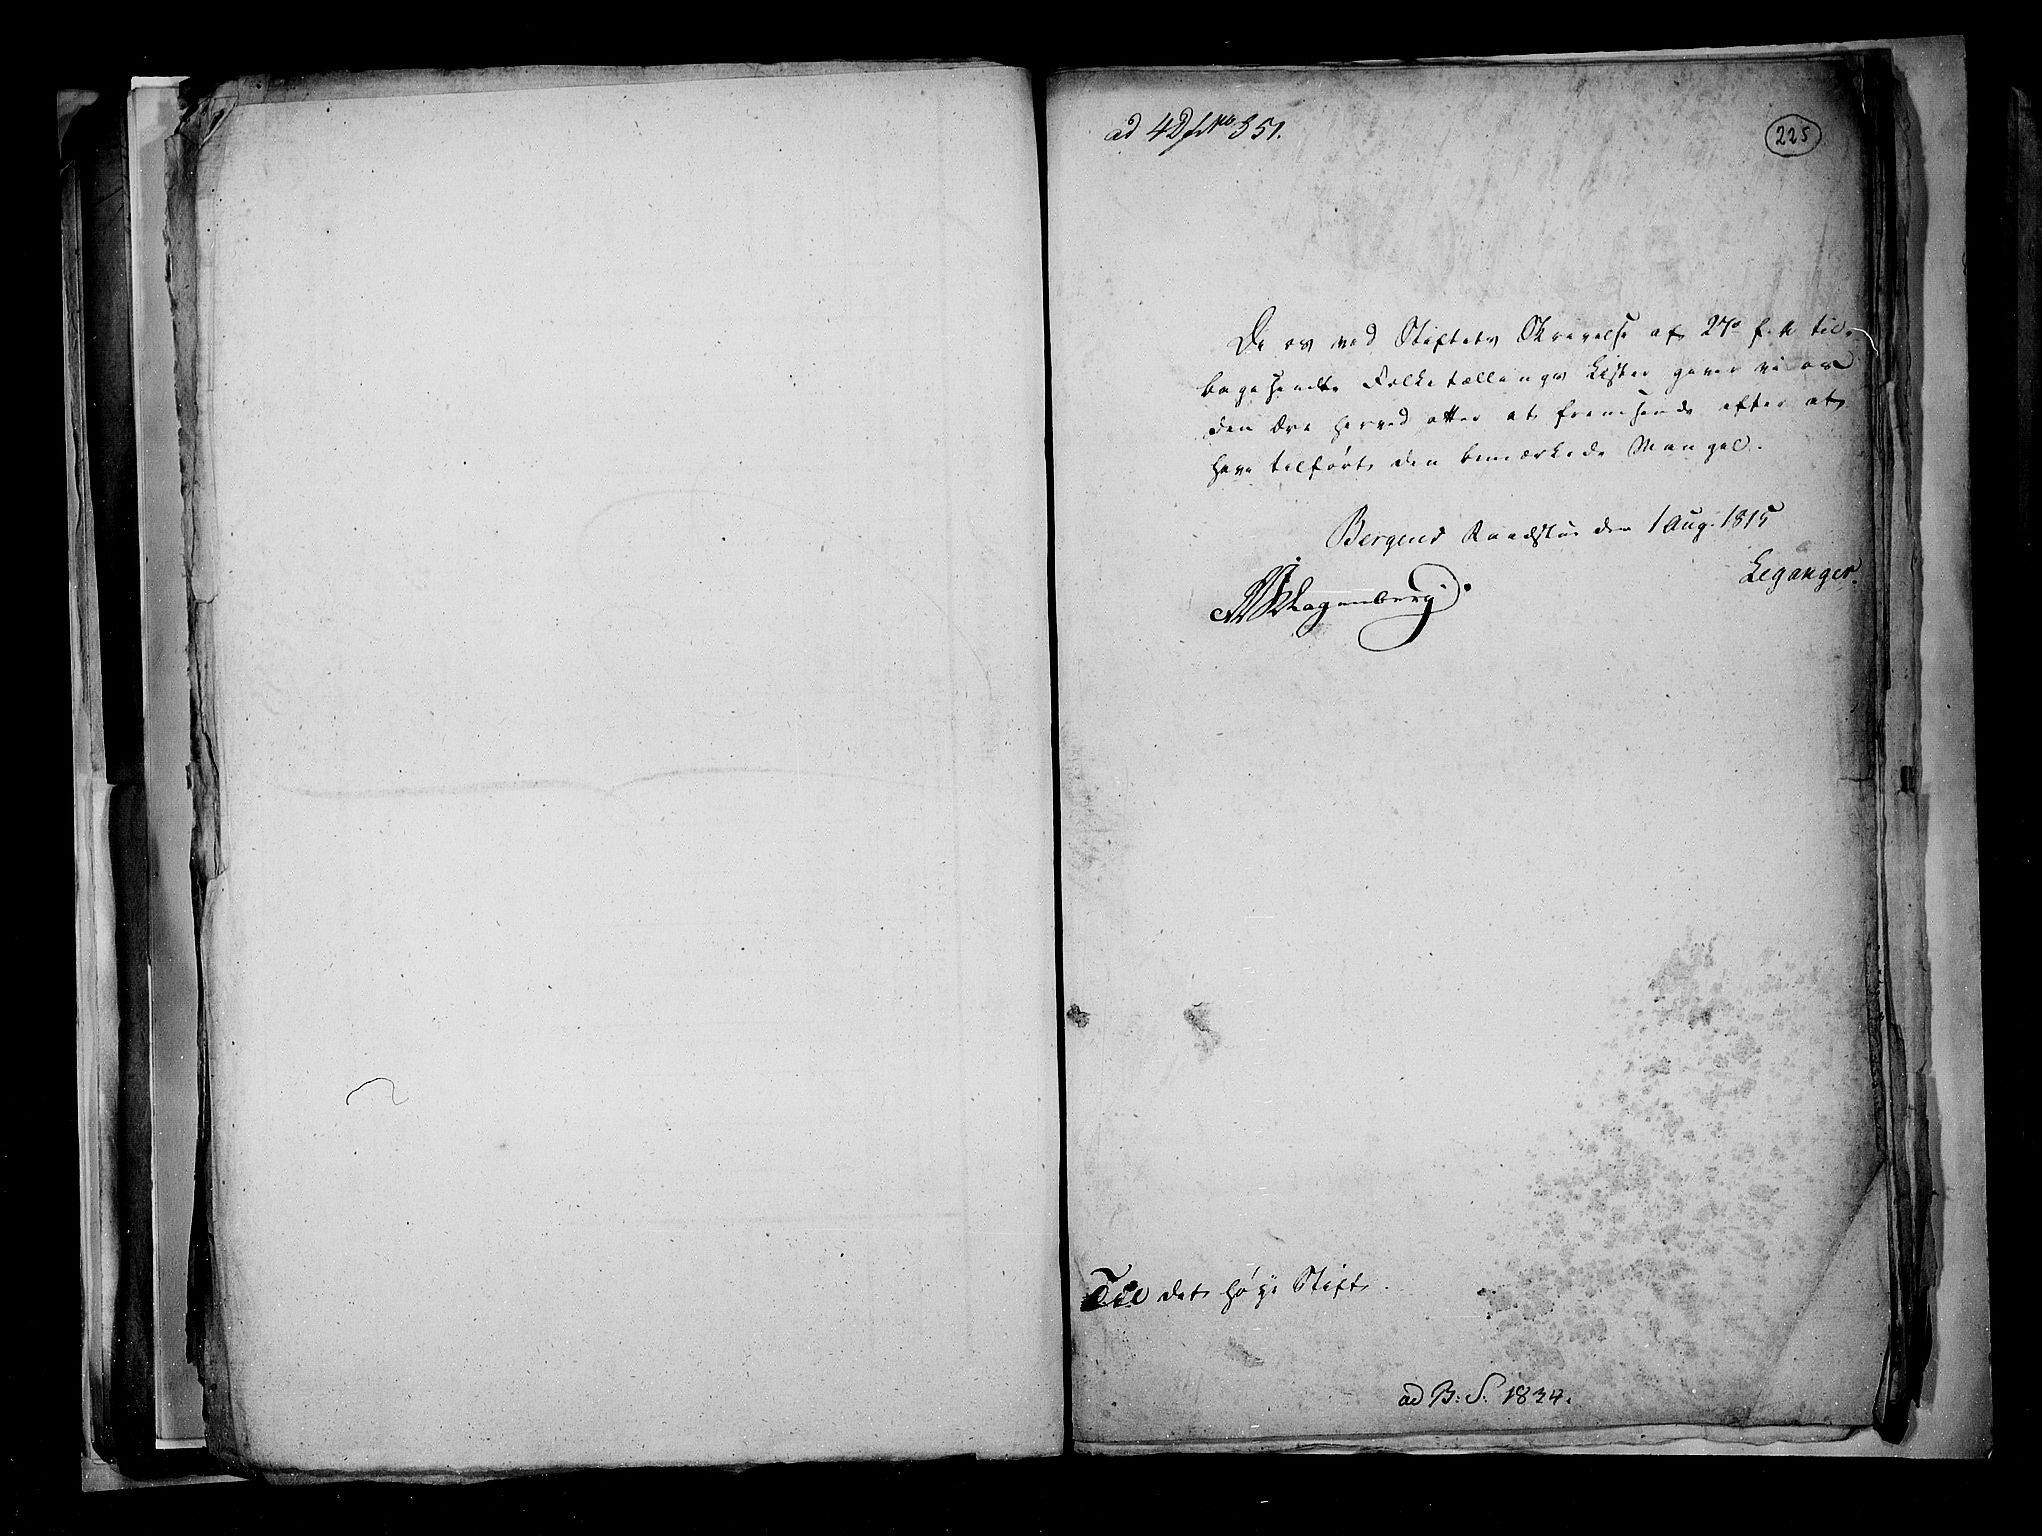 225
De os ved Stiftets Skrivelse af 27de f. M. til-
bagesendte Folketællings Lister giver vi os
den Ære herved atter at fremsende efter at
have tilført den bemærkede Mangel.
Bergens Raadstue den 1 Aug. 1815
Leganger.
Til det høye Stift.
ad B: S. 1834.